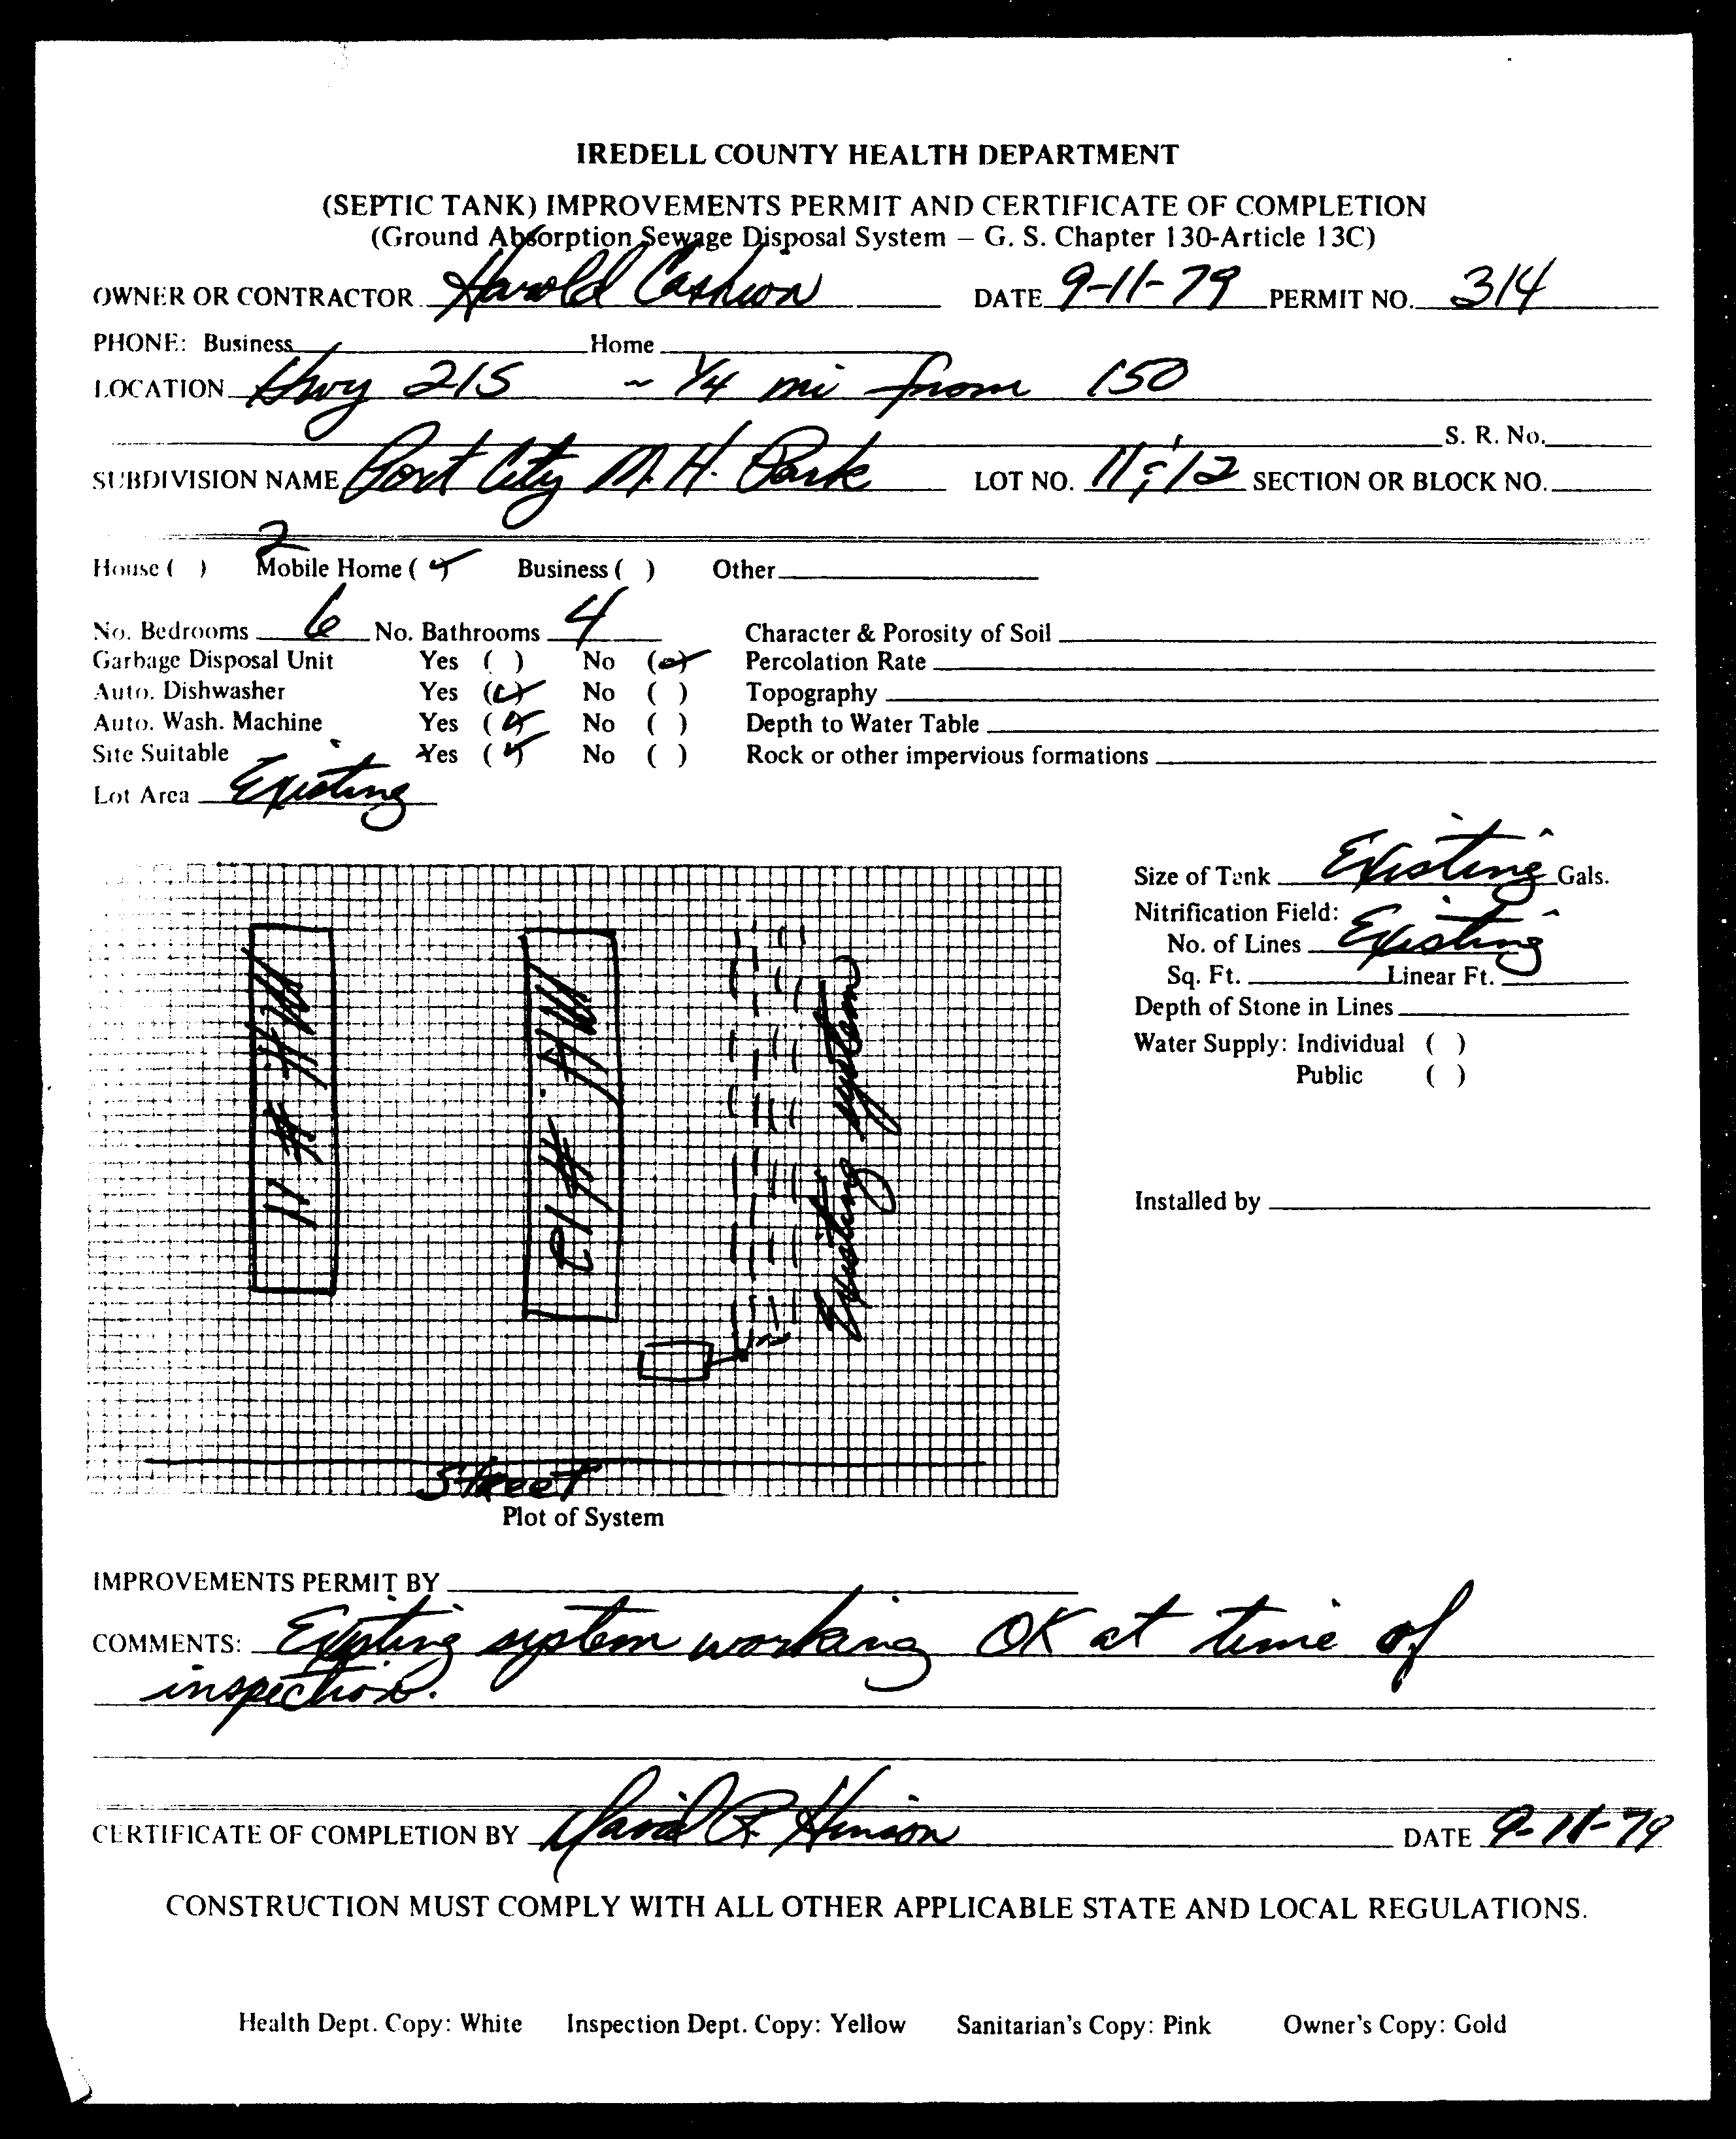 IREDELL COUNTY HEALTH DEPARTMENT
(SEPTIC TANK) IMPROVEMENTS PERMIT AND CERTIFICATE OF COMPLETION
(Ground Absorption Sewage Disposal System – G. S. Chapter 130-Article 13C)
OWNER OR CONTRACTOR Harold Cashion DATE 9-11-79 PERMIT NO. 314
PHONE: Business Home
LOCATION Hwy 215 ~ 1/4 mi from 150
S. R. No.
SUBDIVISION NAME Port City M. H. Park LOT NO. 11 ; 12 SECTION OR BLOCK NO.
2
House ( ) Mobile Home (✓) Business ( ) Other
No. Bedrooms 6 No. Bathrooms 4 Character & Porosity of Soil
Garbage Disposal Unit Yes ( ) No (✓) Percolation Rate
Auto. Dishwasher Yes (✓) No ( ) Topography
Auto. Wash. Machine Yes (✓) No ( ) Depth to Water Table
Site Suitable Yes (✓) No ( ) Rock or other impervious formations
Lot Area Existing
Size of Tank Existing Gals.
Nitrification Field:
No. of Lines Existing
Sq. Ft. Linear Ft.
Depth of Stone in Lines
Water Supply: Individual ( )
Public ( )
Installed by
M.H. # 11
M.H. # 12
Existing system
Street
Plot of System
IMPROVEMENTS PERMIT BY
COMMENTS: Existing system working OK at time of
inspection.
CERTIFICATE OF COMPLETION BY David R. Hinson DATE 9-11-79
CONSTRUCTION MUST COMPLY WITH ALL OTHER APPLICABLE STATE AND LOCAL REGULATIONS.
Health Dept. Copy: White Inspection Dept. Copy: Yellow Sanitarian's Copy: Pink Owner's Copy: Gold